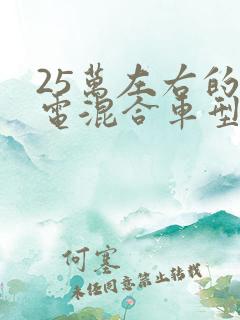 25萬左右的
電混合車型
何塞
未經同意禁止轉載